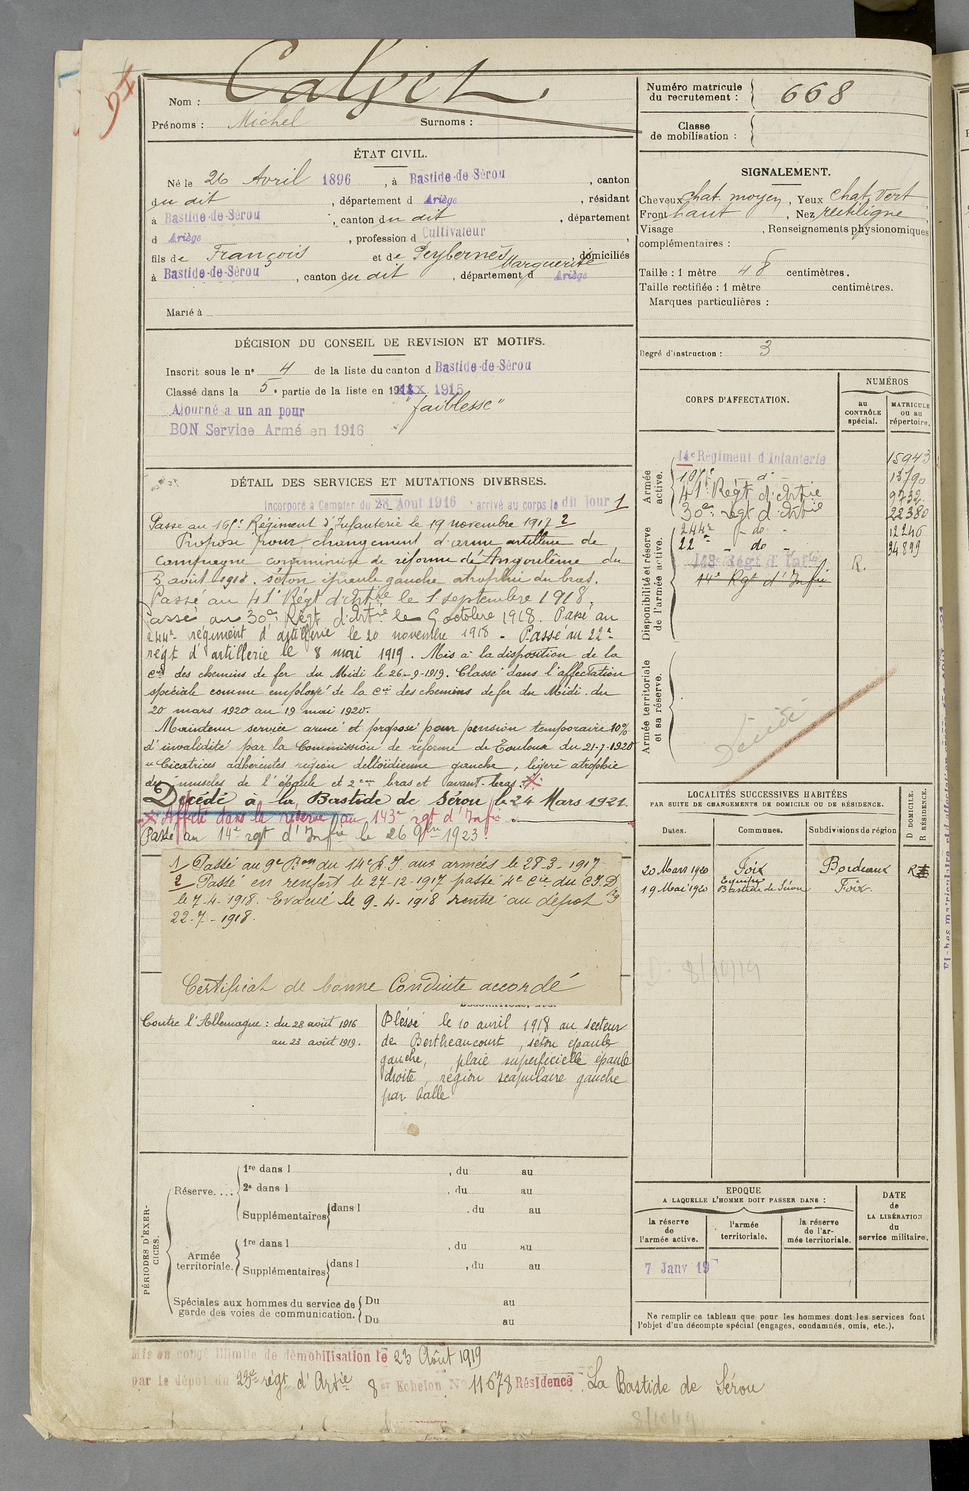 Nom : Calvet
Prénoms : Michel Surnoms :
Numéro matricule du recrutement : 668
Classe de mobilisation :
ÉTAT CIVIL.
Né le 26 Avril 1896, à Bastide-de-Sérou, canton
du dit, département d Ariège, résidant
à Bastide-de-Sérou, canton du dit, département
d Ariège, profession d Cultivateur
fils de François et de Peybernès Marguerite domiciliés
à Bastide-de-Sérou, canton du dit, département d Ariège
Marié à
SIGNALEMENT.
Cheveux chat. moyen, Yeux chat. vert
Front haut, Nez rectiligne
Visage , Renseignements physionomiques
complémentaires :
Taille : 1 mètre centimètres.
Taille rectifiée : 1 mètre centimètres.
Marques particulières :
Degré d'instruction : 3
DÉCISION DU CONSEIL DE REVISION ET MOTIFS.
Inscrit sous le nº 4 de la liste du canton d Bastide-de-Sérou
Classé dans la 5e partie de la liste en 1915
Ajourné a un an pour "faiblesse"
BON Service Armé en 1916
DÉTAIL DES SERVICES ET MUTATIONS DIVERSES.
Incorporé à Compter du 28 Aout 1916 arrivé au corps le dit jour 1
Passé au Régiment d'Infanterie le 19 novembre 1917 2
Proposé pour changement d'arme artillerie de
campagne commission de réforme d'Angoulême du
3 août 1918. séton épaule gauche atrophie du bras.
Passé au 41e Régt d'Artie le 1 septembre 1918.
Passé au 30e Régt d'Artie le 9 octobre 1918. Passé au
244e régiment d'artillerie le 20 novembre 1918 - Passé au 22e
régt d'artillerie le 8 mai 1919. Mis à la disposition de la
Cie des chemins de fer du Midi le 26-9-1919. Classé dans l'affectation
spéciale comme employé de la Cie des chemins de fer du Midi du
20 mars 1920 au 19 mai 1920.
Maintenu service armé et proposé pour pension temporaire 10%
d'invalidité par la Commission de réforme de Toulouse du 21-7-1920
"Cicatrices adhérentes région deltoïdienne gauche, légère atrophie
des muscles de l'épaule et bras et avant-bras.
Décédé à la Bastide de Sérou le 24 Mars 1921.
Affecté dans la réserve au 143e rgt d'Infie
Passé au 14e rgt d'Infie le 26 9bre 1923
1 Passé au 9e Bon du 14e R.I aux armées le 28-3-1917
2 Passé en renfort le 27-12-1917 passé 4e Cie du C.I.D
le 7-4-1918. Evacué le 9-4-1918 rentré au dépôt le
22-7-1918.
Certificat de bonne Conduite accordé
Contre l'Allemagne : du 28 août 1916
au 23 août 1919.
Blessé le 10 avril 1918 au secteur
de Bertheaucourt, séton épaule
gauche, plaie superficielle épaule
droite, région scapulaire gauche
par balle
CORPS D'AFFECTATION.
NUMÉROS
au CONTRÔLE spécial.
MATRICULE ou au répertoire.
Armée active.
14e Régiment d'Infanterie 15943
do 13790
41e Régt d'Artie 9732
30e régt d'Artie 22380
Disponibilité et réserve de l'armée active.
244e do 12246
22e do 34899
143e Régt d'Infie R.
14e Rgt d'Infie
Armée territoriale et sa réserve.
Décédé
LOCALITÉS SUCCESSIVES HABITÉES
PAR SUITE DE CHANGEMENTS DE DOMICILE OU DE RÉSIDENCE.
Dates. Communes. Subdivisions de région D DOMICILE. R RÉSIDENCE.
20 Mars 1920 Foix Bordeaux R
19 Mai 1920 Bastide de Sérou Foix
8/10/19
PÉRIODES D'EXERCICES.
Réserve.... 1re dans l , du au
2e dans l , du au
Supplémentaires dans l , du au
Armée territoriale. 1re dans l , du au
Supplémentaires dans l , du au
Spéciales aux hommes du service de garde des voies de communication. Du au
Du au
EPOQUE
A LAQUELLE L'HOMME DOIT PASSER DANS :
la réserve de l'armée active.
l'armée territoriale.
la réserve de l'armée territoriale.
DATE de LA LIBÉRATION du service militaire.
7 Janv 19
Ne remplir ce tableau que pour les hommes dont les services font
l'objet d'un décompte spécial (engagés, condamnés, omis, etc.).
Mis en congé illimité de démobilisation le 23 Août 1919
par le dépôt du 23e régt d'Artie 8e Echelon No 11678 Résidence La Bastide de Sérou